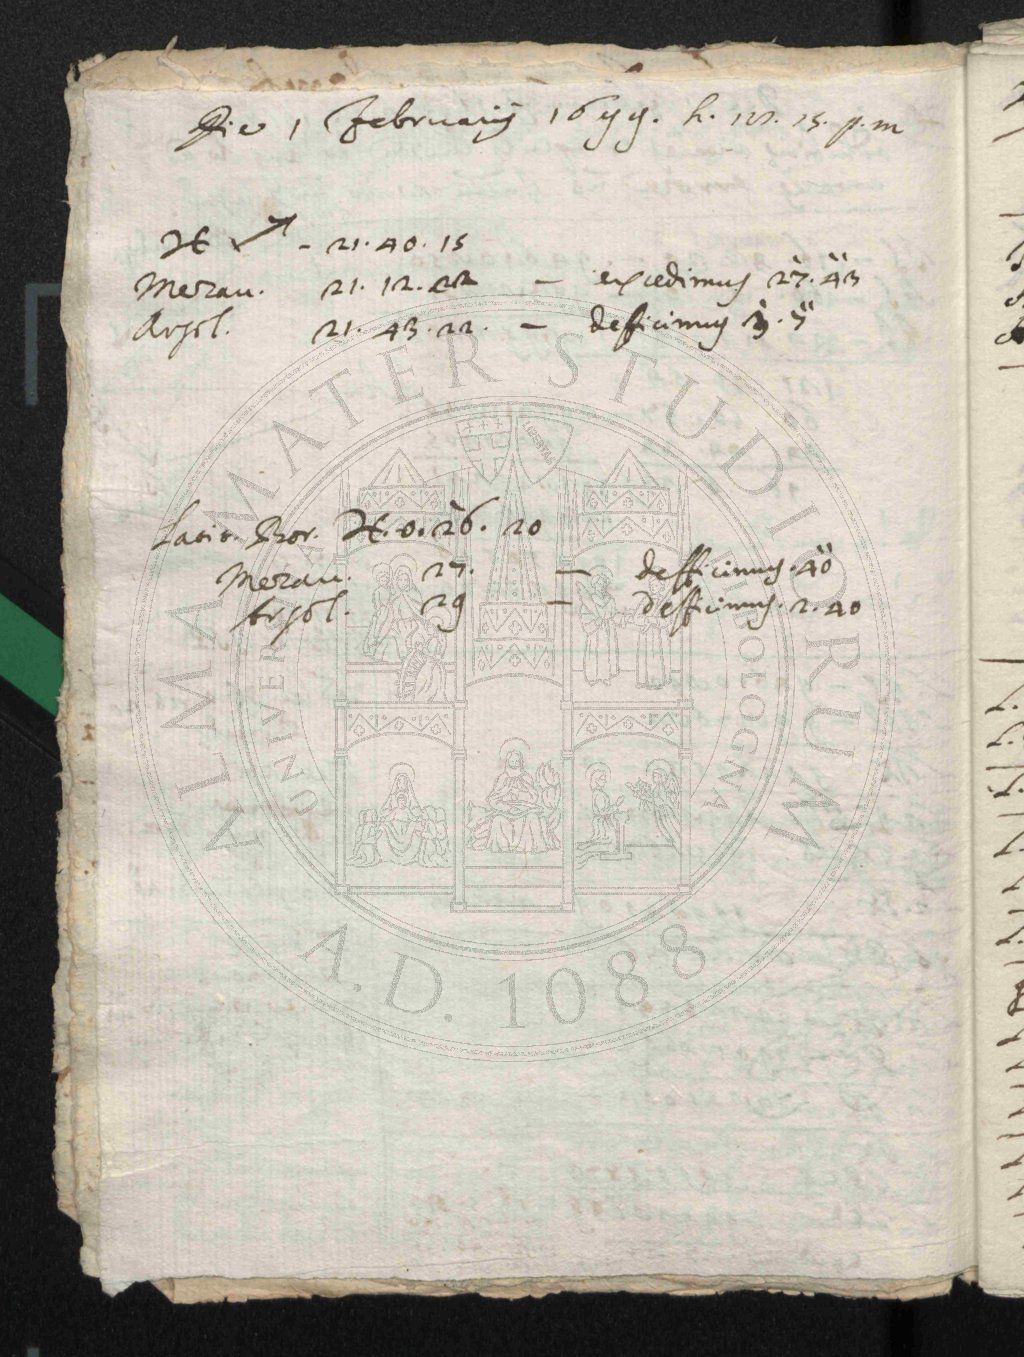 Die 1 Februarij 1699. h. 12. 15. p.m
♃ ♐ - 21. 40. 15
Mezau. 21. 12. 22 — excedimus 27'. 43''
Argol. 21. 43. 22. — defficimus 3'. 5''
Latit. Bor. ♃. 0. 26. 20
Mezau. 27. — defficimus. 40''
Argol. 29 — defficimus. 2. 40
ALMA MATER STUDIORUM
A.D. 1088
LIBERTAS